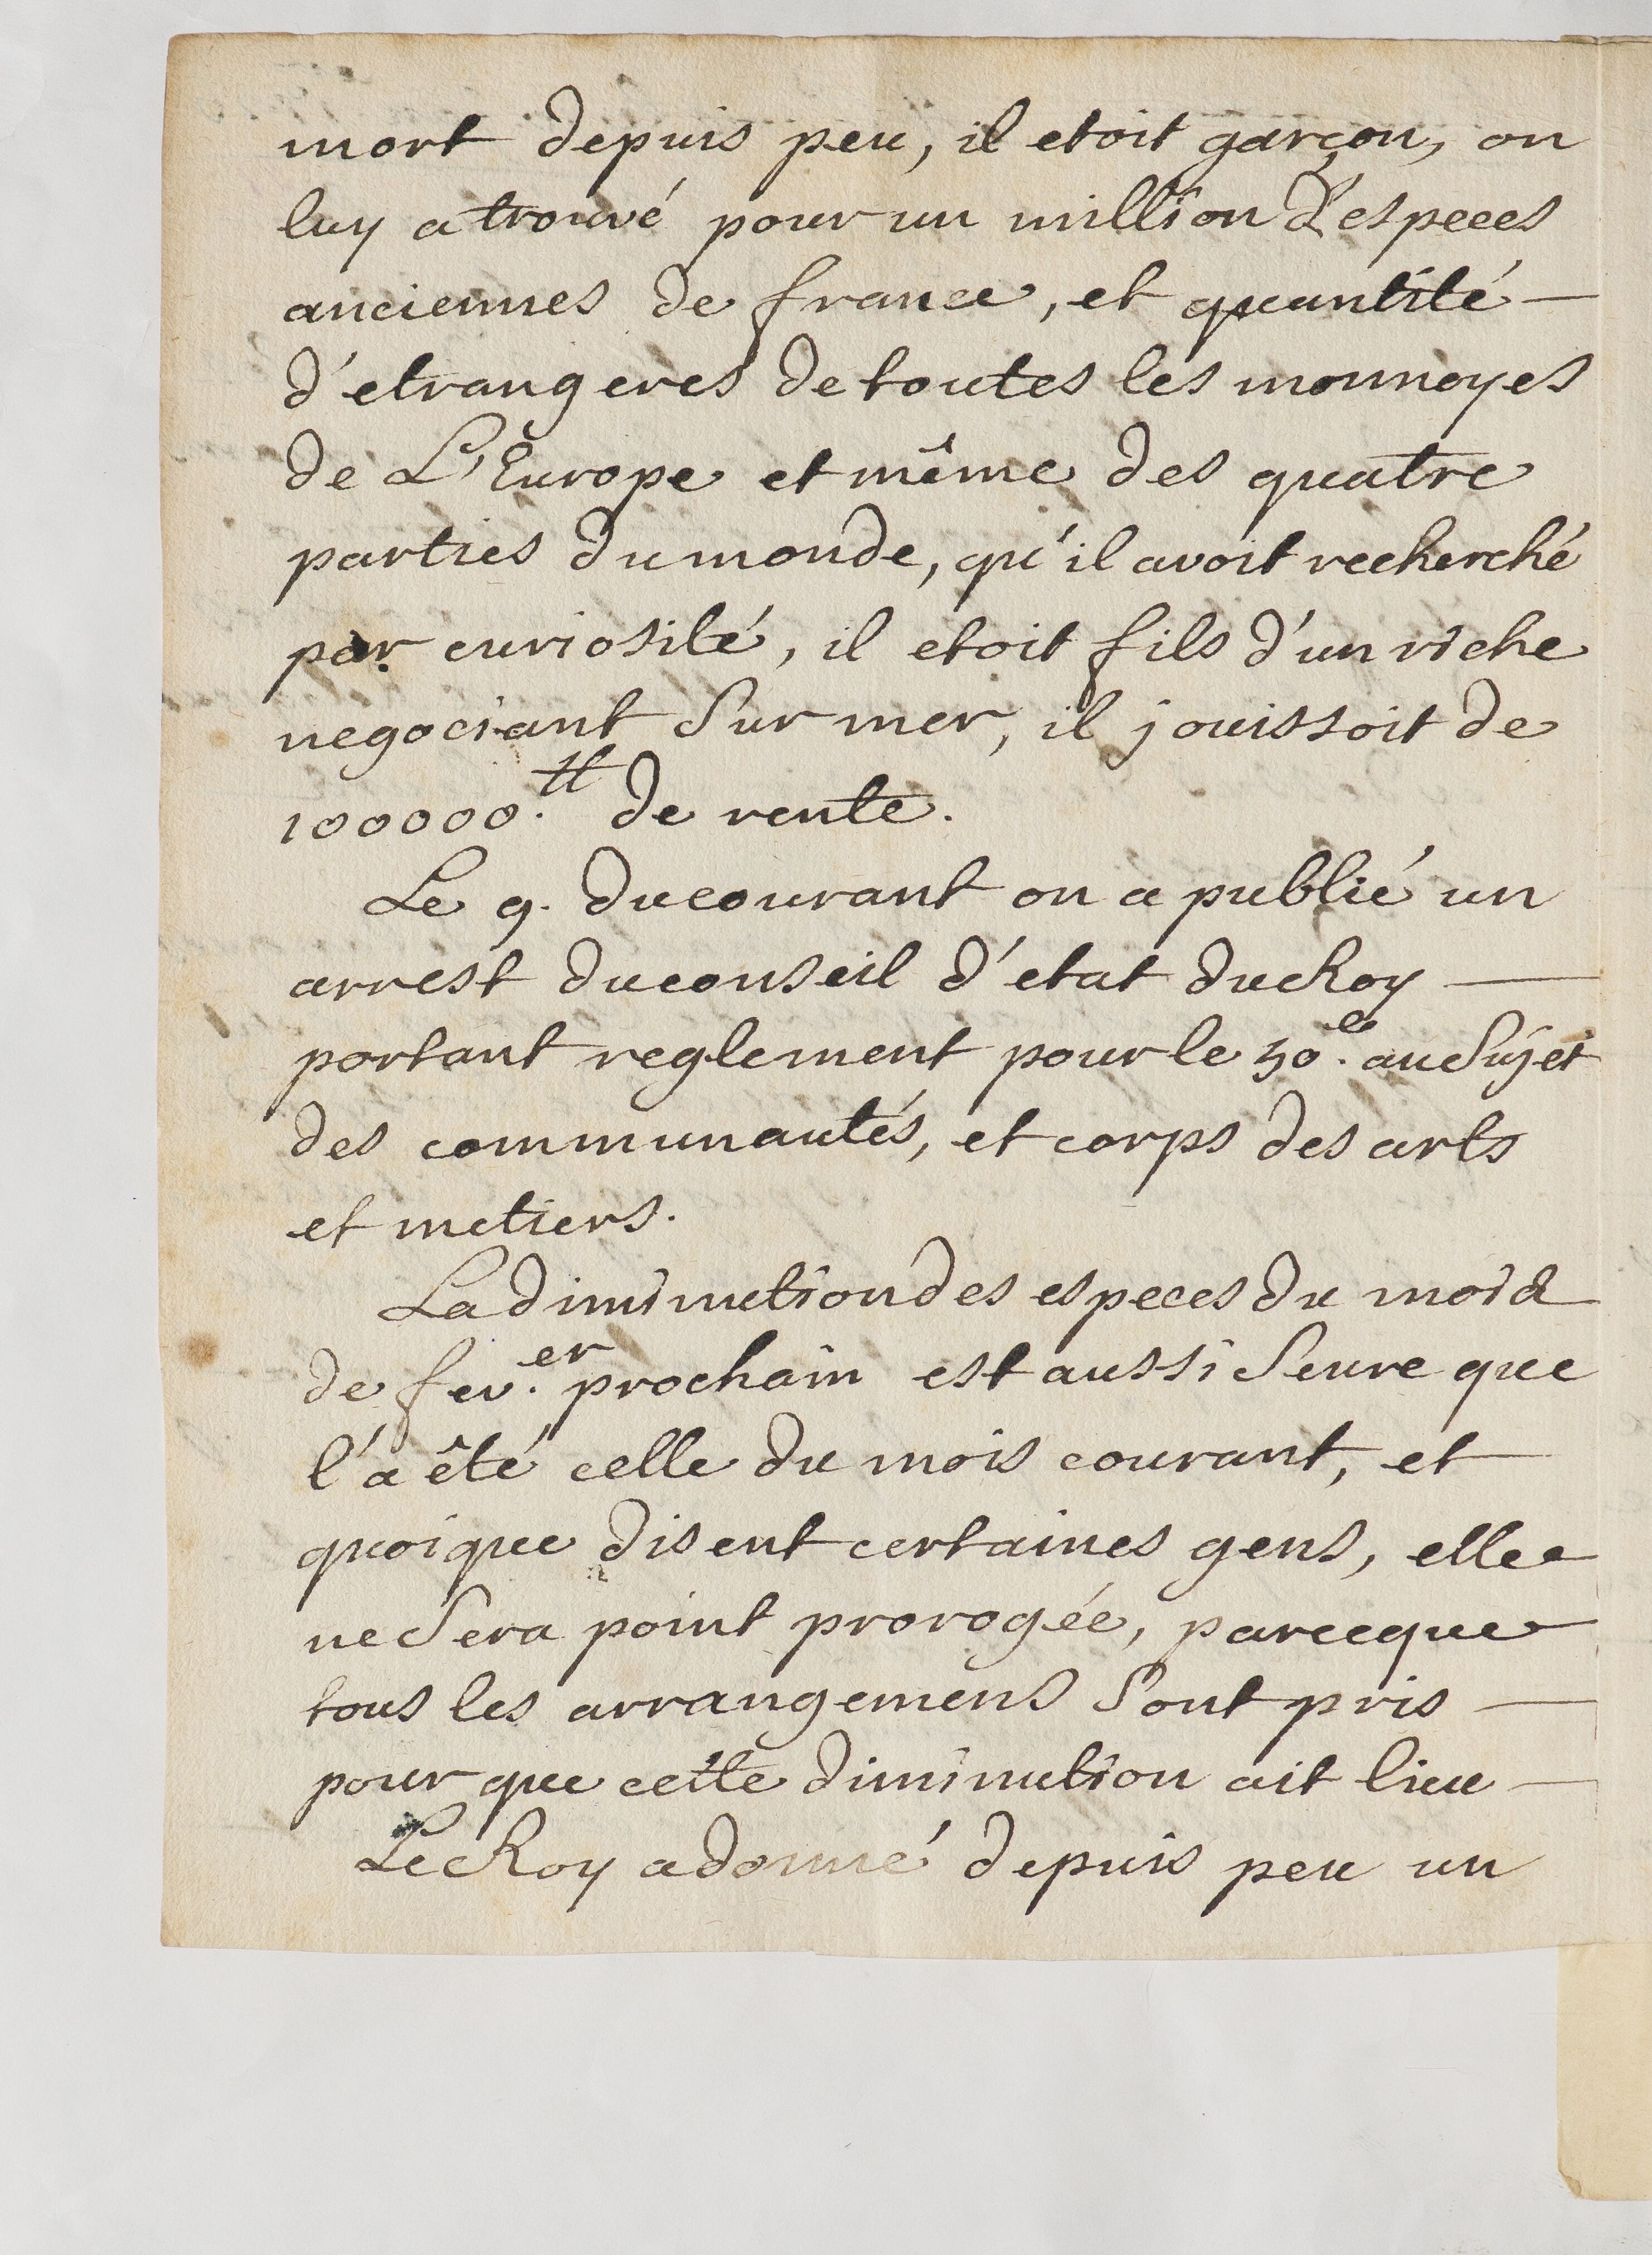 mort depuis peu, il etoit garçon, on
luy a trouvé pour un million d'especes
anciennes de france, et quantité —
d'etrangeres de toutes les monnoyes
de L'Europe et même des quatre
parties du monde, qu'il avoit recherché
par curiosité, il etoit fils d'un riche
negociant Sur mer, il jouissoit de
100000.ᵗᵗ de rente.
Le 9. du courant on a publié un
arrest du conseil d'etat du Roy —
portant reglement pour le 50.ᵉ au Sujet
des communautés, et corps des arts
et metiers.
La diminution des especes du mois
de fev.ᵉʳ prochain est aussi Seure que
l'a êté celle du mois courant, et
quoique disent certaines gens, elle
ne Sera point prorogée, parceque
tous les arrangemens Sont pris —
pour que cette diminution ait lieu —
Le Roy a donné depuis peu un